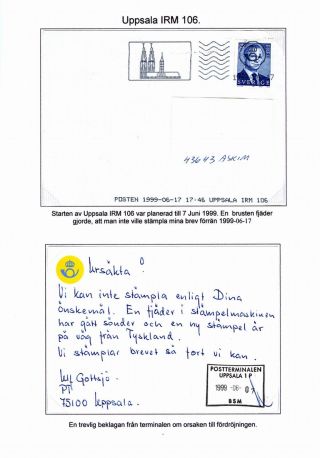 Uppsala IRM 106.
SVERIGE
43643 ASKIM
POSTEN 1999-06-17 17-46 UPPSALA IRM 106
Starten av Uppsala IRM 106 var planerad till 7 Juni 1999. En brusten fjäder
gjorde, att man inte ville stämpla mina brev förrän 1999-06-17
Ursäkta!
Vi kan inte stämpla enligt Dina
önskemål. En fjäder i stämpelmaskinen
har gått sönder och en ny stämpel är
på väg från Tyskland.
Vi stämplar brevet så fort vi kan.
Gottsjö
PT
75100 Uppsala.
POSTTERMINALEN
UPPSALA 1 P
1999 -06-
BSM
En trevlig beklagan från terminalen om orsaken till fördröjningen.